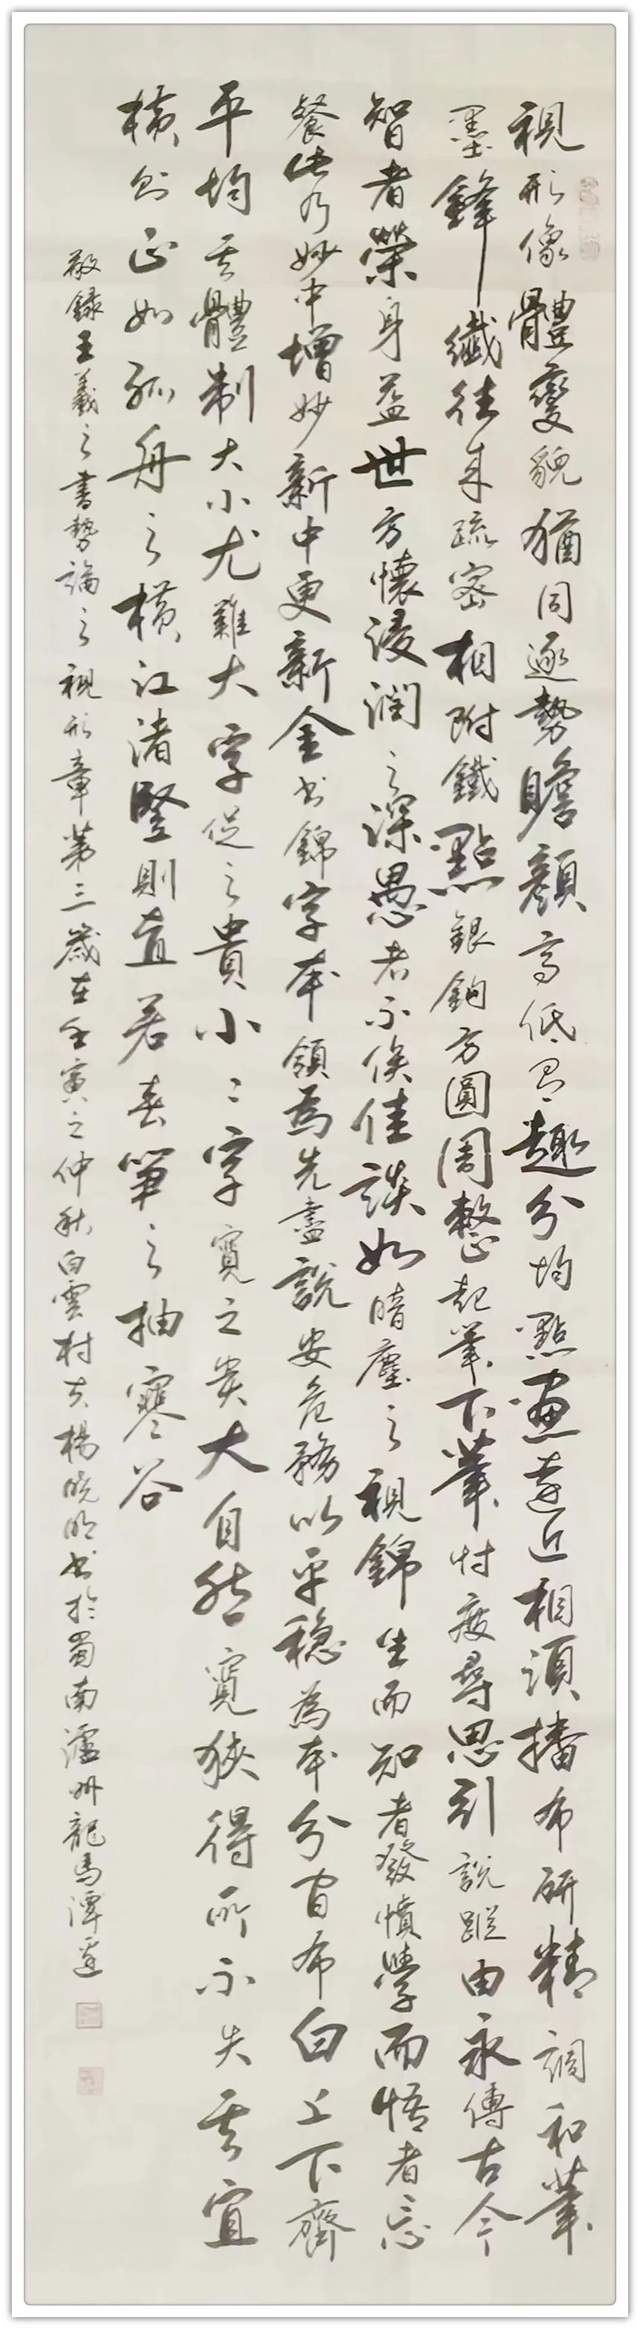 視形像體變貌猶同逐勢瞻顏高低有趣分均點畫遠近相須播布研精調和筆
墨鋒纖往來疏密相附鐵點銀鉤方圓周整起筆下筆忖度尋思引說蹤由永傳古今
智者榮身益世方懷浸潤之深愚者不俟佳談如暗塵之視錦生而知者發憤學而悟者忘
餐此乃妙中增妙新中更新金書錦字本領為先盡說安危務以平穩為本分間布白上下齊
平均其體制大小尤難大字促之貴小小字寬之貴大自然寬狹得所不失其宜
橫則正如孤舟之橫江渚豎則直若春筍之抽寒谷
敬錄王羲之書勢論之視形章第三歲在壬寅之仲秋白雲村夫楊曉明書於蜀南瀘州龍馬潭邊